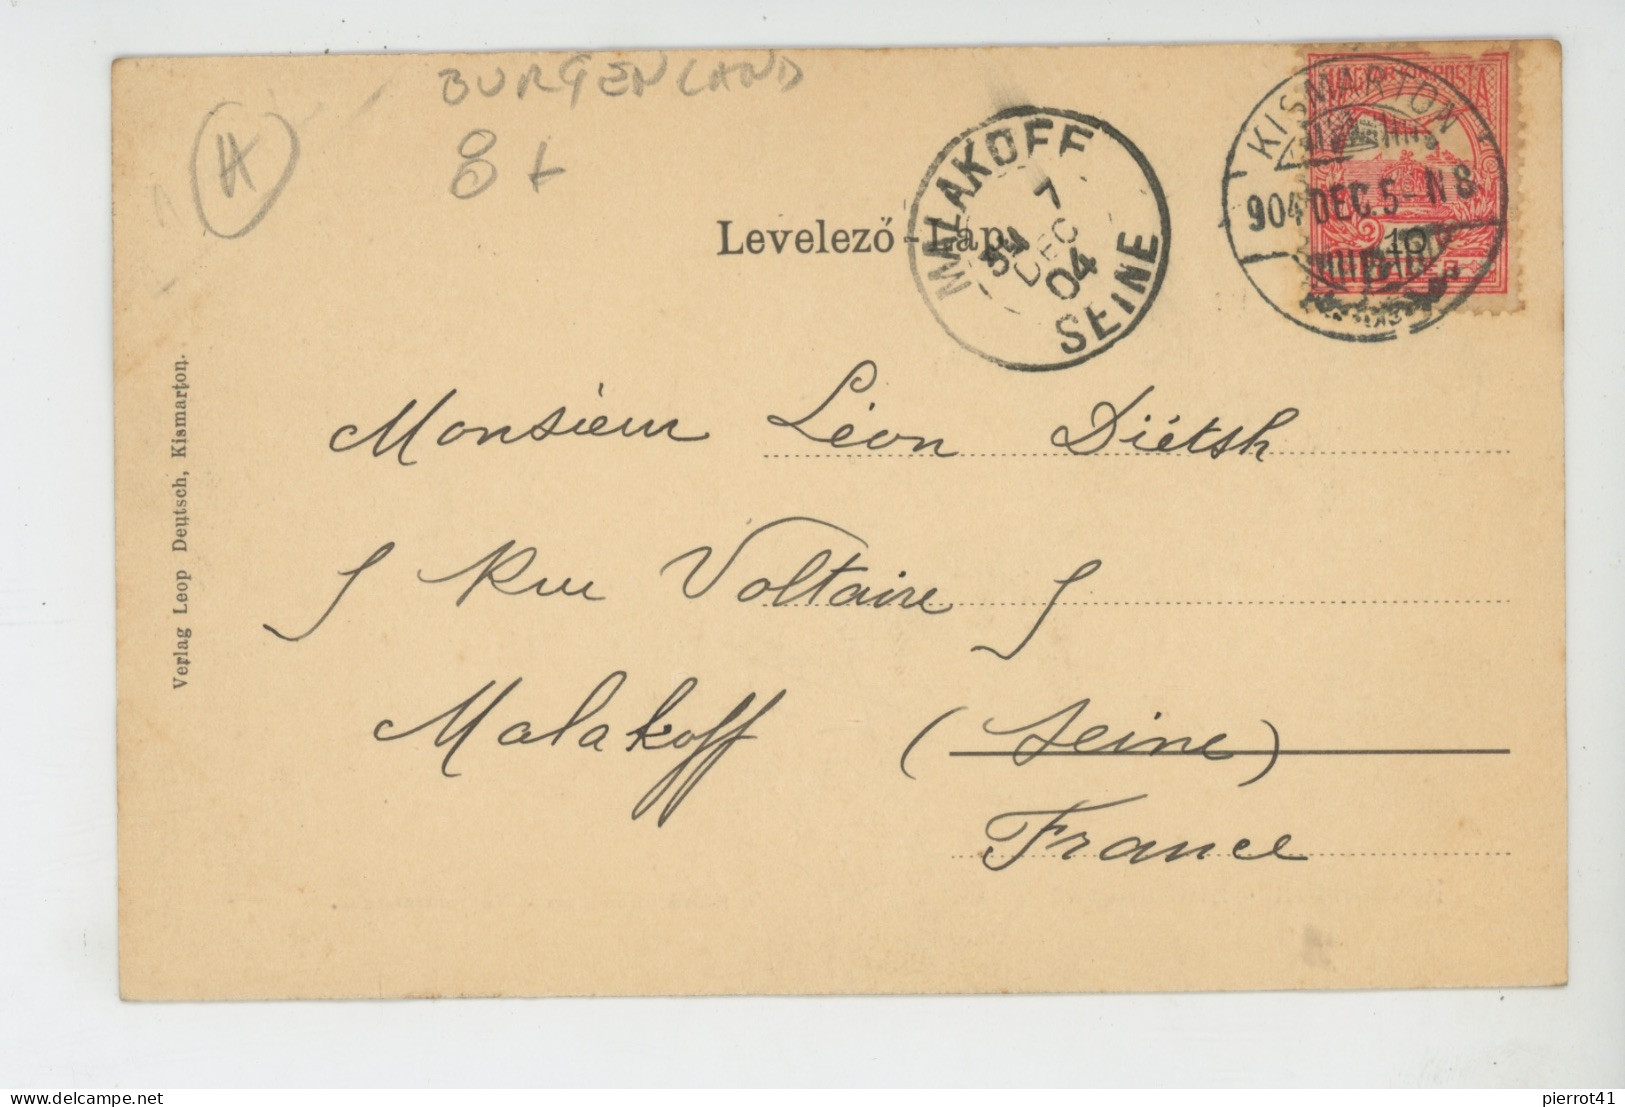 BURGENLAND
8+
A
Levelező-Lap
MALAKOFF
7
DEC
04
SEINE
MAGYAR KIR. POSTA
KISMARTON
904 DEC. 5 - N 8
10
Verlag Leop Deutsch, Kismarton.
Monsieur Léon Diétsh
5 Rue Voltaire 5
Malakoff (Seine)
France
pierrot41